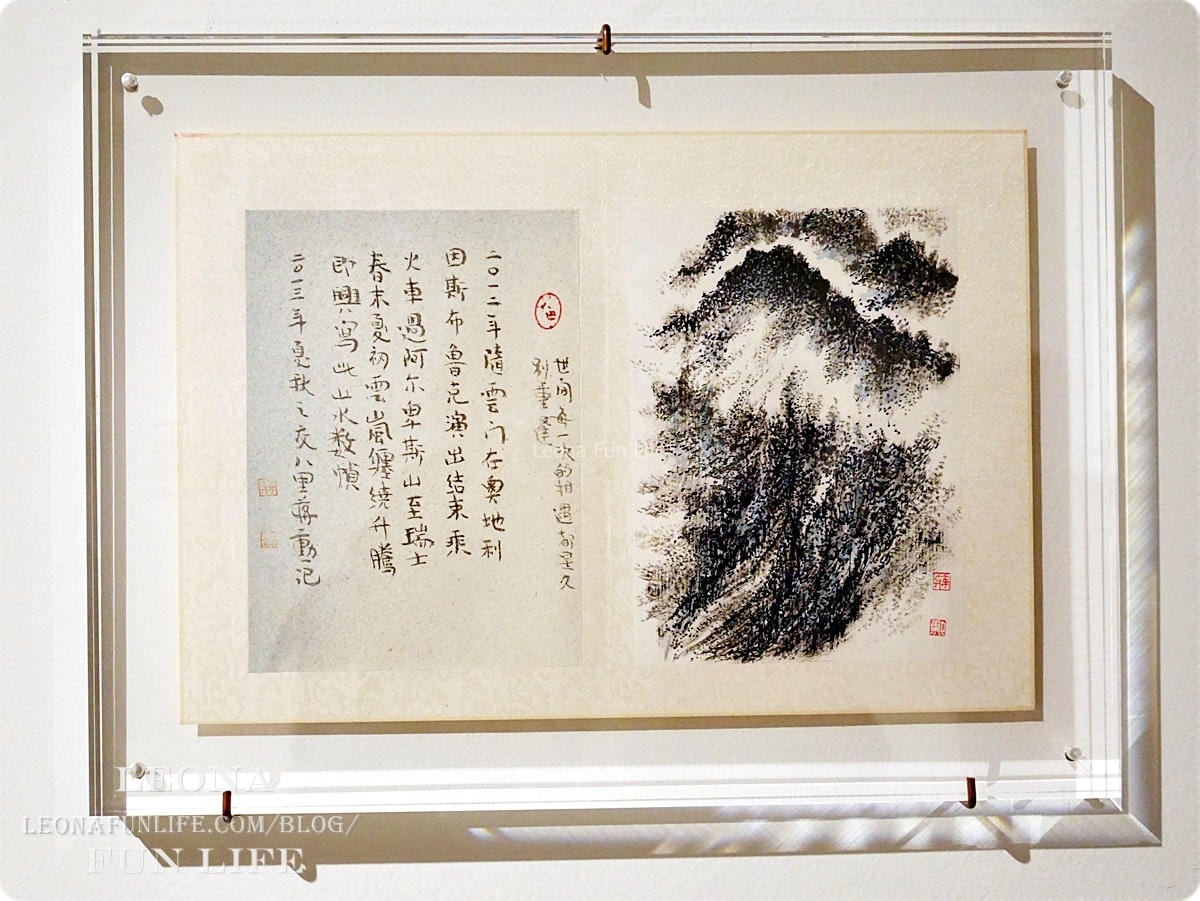 世间每一次的相遇都是久
别重逢
二〇一二年隨雲门在奧地利
因斯布魯克演出结束乘
火車過阿尔卑斯山至瑞士
春末夏初雲嵐纏繞升騰
即興寫此山水数幀
二〇一三年夏秋之交八里蔣勳記
Leona Fun Life
LEONA
LEONAFUNLIFE.COM/BLOG/
FUN LIFE